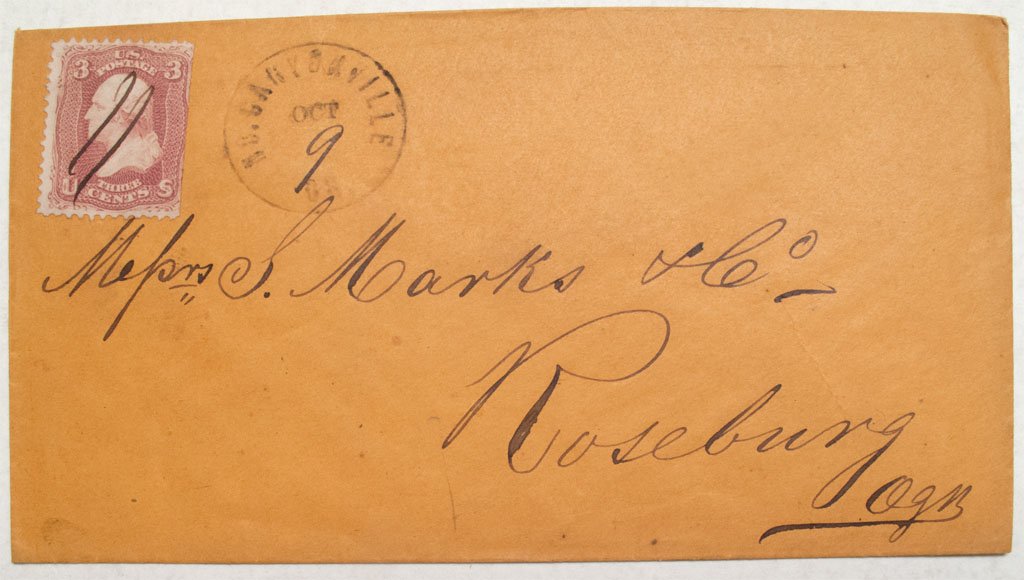 3 U.S. 3
POSTAGE
THREE
CENTS
U S
CANYONVILLE
OCT
9
Messrs S. Marks & Co
Roseburg
Ogn